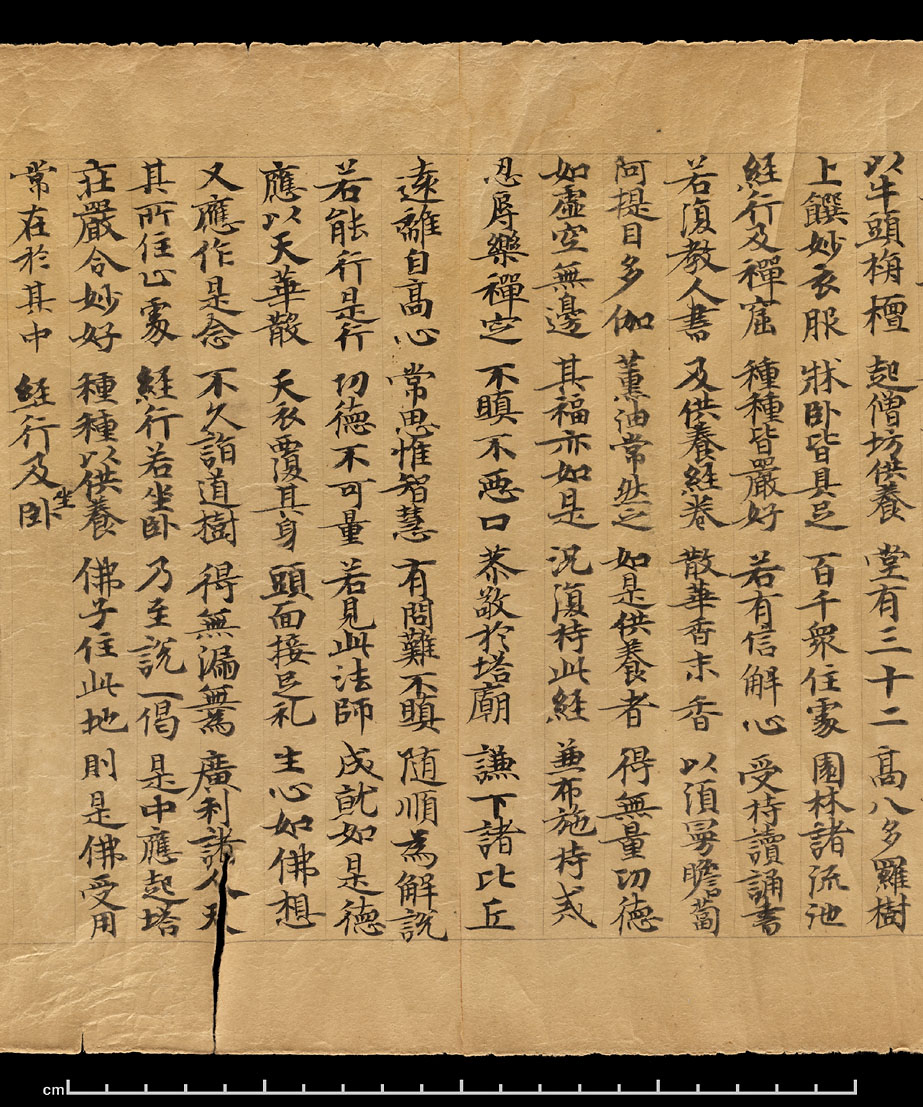 以牛頭栴檀　起僧坊供養　堂有三十二　高八多羅樹
上饌妙衣服　牀卧皆具足　百千衆住處　園林諸流池
経行及禪窟　種種皆嚴好　若有信解心　受持讀誦書
若復教人書　及供養経卷　散華香末香　以須曼瞻蔔
阿提目多伽　薰油常然之　如是供養者　得無量功德
如虛空無邊　其福亦如是　況復持此経　兼布施持戒
忍辱樂禪定　不瞋不惡口　恭敬於塔廟　謙下諸比丘
遠離自高心　常思惟智慧　有問難不瞋　随順為解説
若能行是行　功德不可量　若見此法師　成就如是德
應以天華散　天衣覆其身　頭面接足礼　生心如佛想
又應作是念　不久詣道樹　得無漏無為　廣利諸人天
其所住止處　経行若坐卧　乃至說一偈　是中應起塔
莊嚴令妙好　種種以供養　佛子住此地　則是佛受用
常在於其中　経行及坐卧